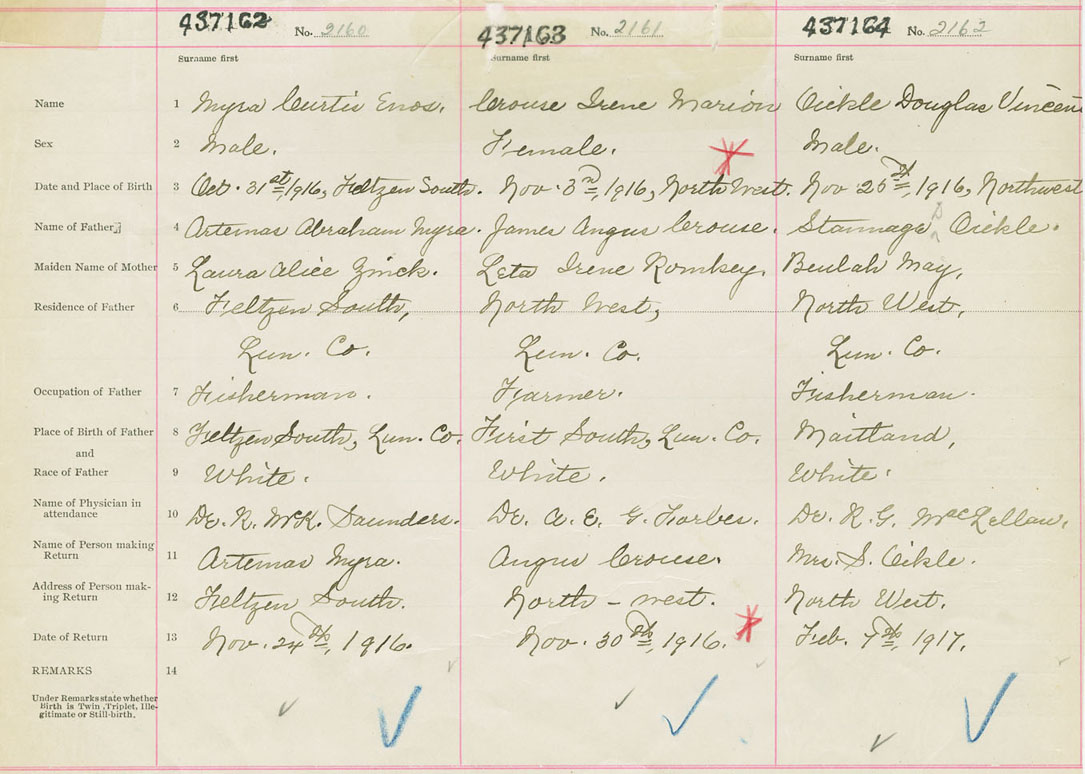 437162 No. 2160 437163 No. 2161 437164 No. 2162
Surname first Surname first Surname first
Name 1 Myra Curtis Enos. Crouse Irene Marion Oickle Douglas Vincent
Sex 2 Male. Female. Male.
Date and Place of Birth 3 Oct. 31st, 1916, Feltzen South. Nov. 3rd, 1916, North West. Nov 25th, 1916, Northwest
Name of Father 4 Artemas Abraham Myra. James Angus Crouse. Stannage Oickle.
Maiden Name of Mother 5 Laura Alice Zinck. Leta Irene Romkey. Beulah May,
Residence of Father 6 Feltzen South, North West, North West,
Lun. Co. Lun. Co. Lun. Co.
Occupation of Father 7 Fisherman. Farmer. Fisherman.
Place of Birth of Father 8 Feltzen South, Lun. Co. First South, Lun. Co. Maitland,
and
Race of Father 9 White. White. White.
Name of Physician in
attendance 10 Dr. R. McK. Saunders. Dr. A. E. G. Forbes. Dr. R. G. MacLellan.
Name of Person making
Return 11 Artemas Myra. Angus Crouse. Mrs. S. Oikle.
Address of Person mak-
ing Return 12 Feltzen South. North - west. North West.
Date of Return 13 Nov. 24th, 1916. Nov. 30th, 1916. Feb. 7th, 1917.
REMARKS 14
Under Remarks state whether
Birth is Twin, Triplet, Ille-
gitimate or Still-birth.